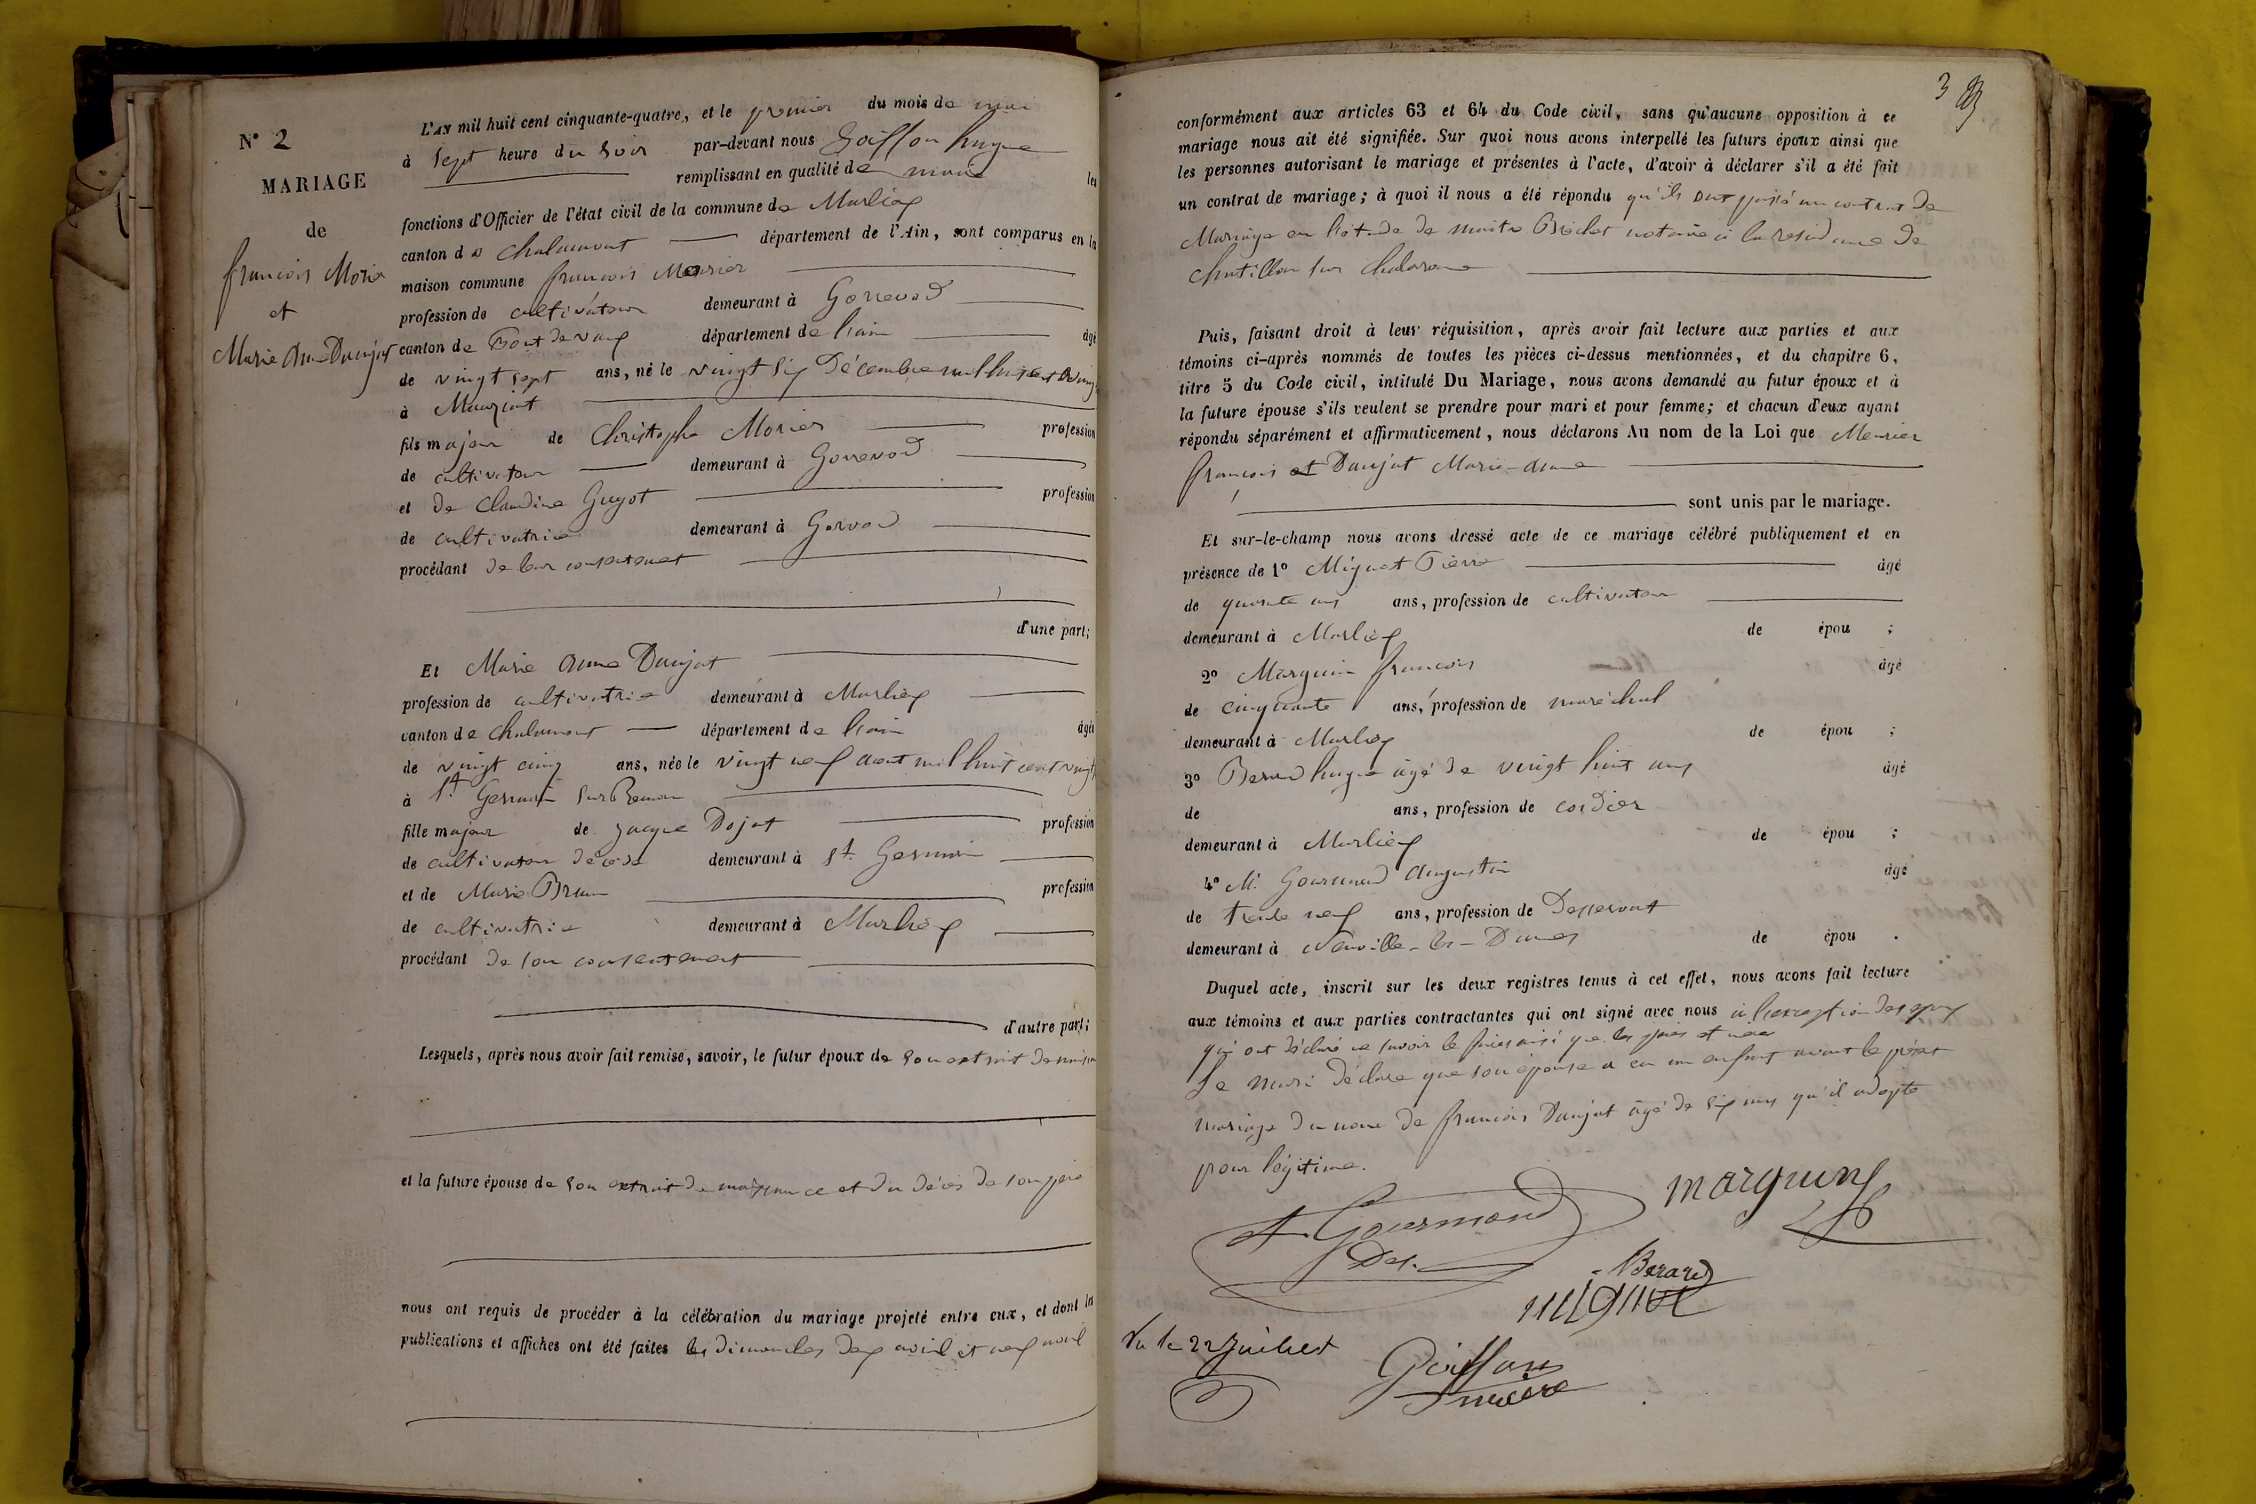 N° 2
MARIAGE
de
françois Morier
et
Marie Anne Daujat
L'AN mil huit cent cinquante-quatre, et le premier du mois de mai
à Sept heure du Soir par-devant nous Goiffon hugue
remplissant en qualité de maire les
fonctions d'Officier de l'état civil de la commune de Marlieux
canton de Chalamont département de l'Ain, sont comparus en la
maison commune françois Morier
profession de cultivateur demeurant à Gorrevod
canton de Pont de vaux département de l'ain âgé
de vingt sept ans, né le vingt six Décembre mil huit cent vingt
à Manziat
fils majeur de Christophe Morier profession
de cultivateur demeurant à Gorrevod
et de Claudine Guyot profession
de cultivatrice demeurant à Gorvod
procédant de leur consentement
d'une part;
Et Marie anne Daujat
profession de cultivatrice demeurant à Marlieux
canton de Chalamont département de l'ain âgée
de vingt cinq ans, née le vingt neuf aout mil huit cent vingt
à St Germain sur Renon
fille majeur de Jacque Dojat profession
de cultivateur décédé demeurant à St Germain
et de Marie Brun profession
de cultivatrice demeurant à Marlieux
procédant de son consentement
d'autre part;
Lesquels, après nous avoir fait remise, savoir, le futur époux de son extrait de naissan
et la future épouse de son extrait de naissance et du décès de son père
nous ont requis de procéder à la célébration du mariage projeté entre eux, et dont la
publications et affiches ont été faites les dimanches deux avril et neuf avril
3
conformément aux articles 63 et 64 du Code civil, sans qu'aucune opposition à ce
mariage nous ait été signifiée. Sur quoi nous avons interpellé les futurs époux ainsi que
les personnes autorisant le mariage et présentes à l'acte, d'avoir à déclarer s'il a été fait
un contrat de mariage; à quoi il nous a été répondu qu'ils ont passé un contrat de
Mariage en l'étude de maitre Brochet notaire à la résidence de
Chatillon sur Chalaronne
Puis, faisant droit à leur réquisition, après avoir fait lecture aux parties et aux
témoins ci-après nommés de toutes les pièces ci-dessus mentionnées, et du chapitre 6,
titre 5 du Code civil, intitulé Du Mariage, nous avons demandé au futur époux et à
la future épouse s'ils veulent se prendre pour mari et pour femme; et chacun d'eux ayant
répondu séparément et affirmativement, nous déclarons Au nom de la Loi que Meurier
françois et Daujat Marie-anne
sont unis par le mariage.
Et sur-le-champ nous avons dressé acte de ce mariage célébré publiquement et en
présence de 1° Mignat Pierre âgé
de quarante ans ans, profession de cultivateur
demeurant à Marlieux de épou ;
2° Marguin françois âgé
de cinquante ans, profession de maréchal
demeurant à Marlieux de épou ;
3° Berard hugue âgé de vingt huit ans âgé
de ans, profession de cordier
demeurant à Marlieux de épou ;
4° M. Gourmand Augustin âgé
de trente neuf ans, profession de Desservant
demeurant à Neuville-les-Dames de épou .
Duquel acte, inscrit sur les deux registres tenus à cet effet, nous avons fait lecture
aux témoins et aux parties contractantes qui ont signé avec nous à l'exception des époux
qui ont déclaré ne savoir le faire ainsi que les père et mère
Le mari déclare que son épouse a eu un enfant avant le présent
mariage du nom de françois Daujat âgé de six ans qu'il adopte
pour légitime.
A. Gourmand
Des.
marguin
Berard
mignat
Vu le 22 Juillet
Goiffon
maire